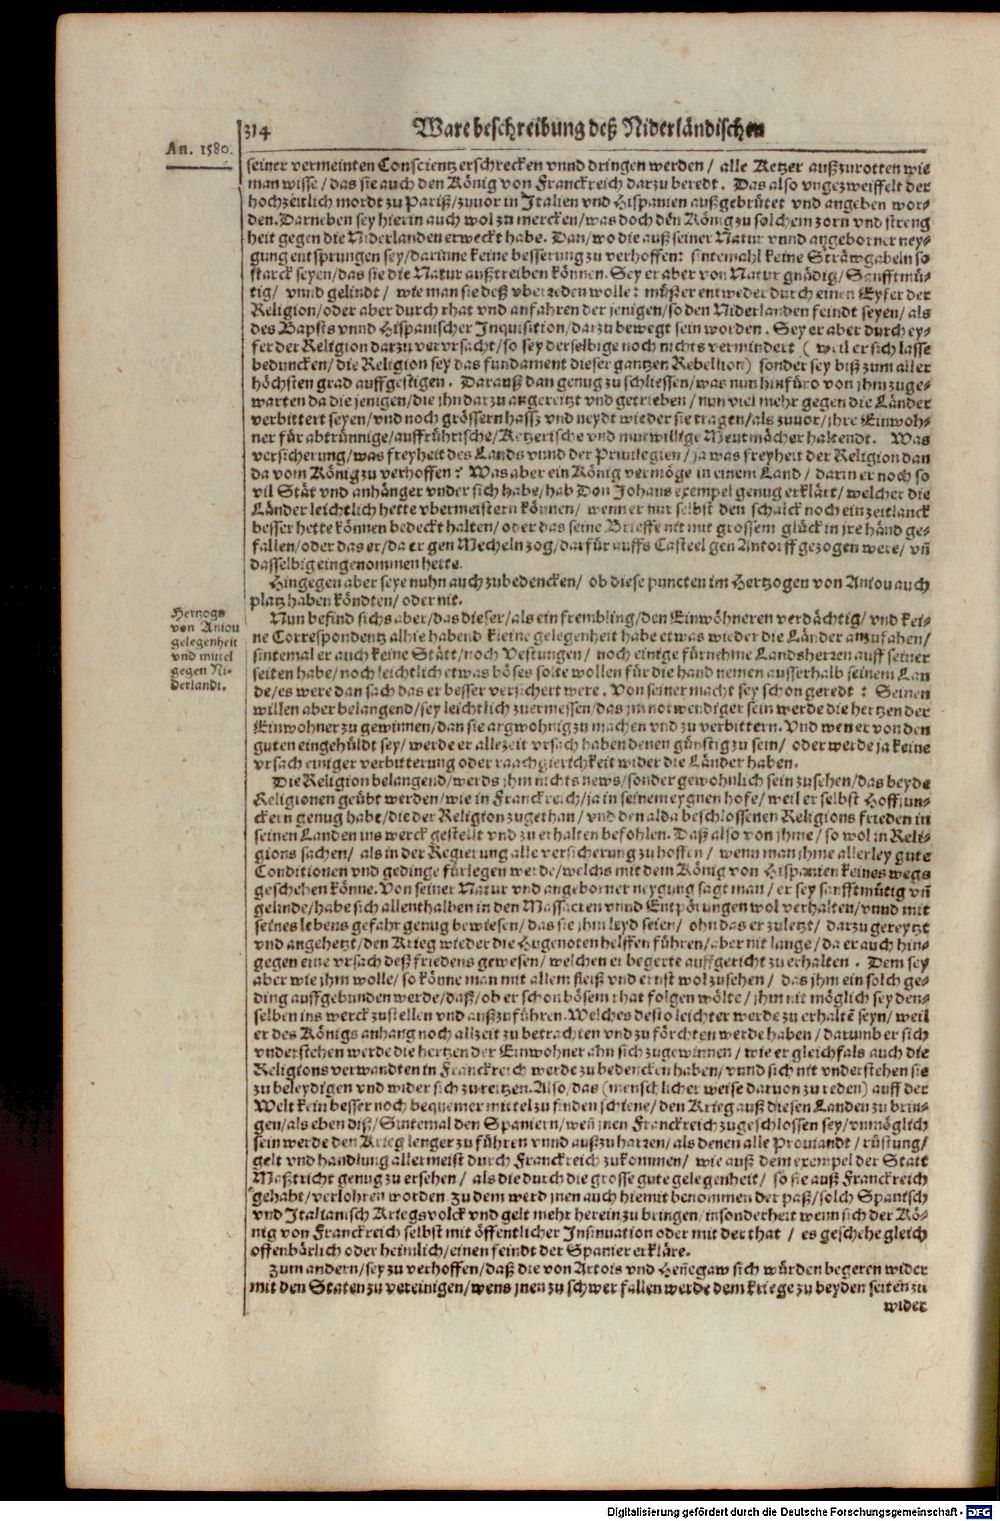 314
Ware beschreibung deß Niderländischen
An. 1580.
seiner vermeinten Conscientz erschrecken vnnd dringen werden / alle Ketzer außzurotten wie
man wisse / das sie auch den König von Franckreich darzu beredt. Das also vngezweiffelt der
hochzeitlich mordt zu Pariß / zuuor in Italien vnd Hispanien außgebrütet vnd angeben wor-
den. Darneben sey hierin auch wol zu mercken / was doch den König zu solchem zorn vnd streng
heit gegen die Niderlanden erweckt habe. Dan / wo die auß seiner Natur vnnd angeborner ney-
gung entsprungen sey / darinne keine besserung zu verhoffen: sintemahl keine Sträwgabeln so
starck seyen / das sie die Natur außtreiben können. Sey er aber von Natur gnädig / Sanfftmü-
tig / vnnd gelindt / wie man sie deß vberreden wolle: müß er entweder durch einen Eyfer der
Religion / oder aber durch rhat vnd anfahren der jenigen / so den Niderlanden feindt seyen / als
des Bapsts vnnd Hispanischer Inquisition / darzu bewegt sein worden. Sey er aber durch ey-
fer der Religion darzu vervrsacht / so sey derselbige noch nichts vermindert ( weil er sich lasse
beduncken / die Religion sey das fundament dieser gantzen Rebellion) sonder sey biß zum aller
höchsten grad auffgestigen. Darauß dan genug zu schliessen / was nun hinfüro von jhm zuge-
warten da die jenigen / die jhn darzu angereitzt vnd getrieben / nun viel mehr gegen die Länder
verbittert seyen / vnd noch grössern hassz vnd neydt wieder sie tragen / als zuuor / jhre Einwoh-
ner für abtrünnige / auffrührische / Ketzerische vnd mutwillige Meutmächer haltendt. Was
versicherung / was freyheit des Lands vnnd der Priuilegien / ja was freyheit der Religion dan
da vom König zu verhoffen? Was aber ein König vermöge in einem Land / darin er noch so
vil Stät vnd anhänger vnder sich habe / hab Don Johans exempel genug erklärt / welcher die
Länder leichtlich hette vbermeistern können / wenn er nur selbst den schalck noch ein zeitlanck
besser hette können bedeckt halten / oder das seine Brieffe nit mit grossem glück in jre händ ge-
fallen / oder das er / da er gen Mecheln zog / darfür auffs Casteel gen Antorff gezogen were / vñ
dasselbig eingenommen hette.
Hingegen aber seye nuhn auch zubedencken / ob diese puncten im Hertzogen von Aniou auch
platz haben köndten / oder nit.
Hertzogs
von Aniou
gelegenheit
vnd mittel
gegen Ni-
derlandt.
Nun befind sichs aber / das dieser / als ein frembling / den Einwöhneren verdächtig / vnd kei-
ne Correspondentz alhie habend kleine gelegenheit habe etwas wieder die Länder anzufahen /
sintemal er auch keine Stätt / noch Vestungen / noch einige fürnehme Landsherren auff seiner
seiten habe / noch leichtlich etwas böses solte wollen für die hand nemen ausserhalb seinem Lan
de / es were dan sach das er besser versichert were. Von seiner macht sey schon geredt: Seinen
willen aber belangend / sey leichtlich zuermessen / das jm notwendiger sein werde die hertzen der
Einwohner zu gewinnen / dan sie argwöhnig zu machen vnd zu verbittern. Vnd wen er von den
guten eingehüldt sey / werde er allezeit vrsach haben denen günstig zu sein / oder werde ja keine
vrsach einiger verbitterung oder raachgierichkeit wider die Länder haben.
Die Religion belangend / werds jhm nichts news / sonder gewohnlich sein zusehen / das beyde
Religionen geübt werden / wie in Franckreich / ja in seinem eygnen hofe / weil er selbst Hoffjun-
ckern genug habt / die der Religion zugethan / vnd den alda beschlossenen Religions frieden in
seinen Landen ins werck gestellt vnd zu erhalten befohlen. Daß also von jhme / so wol in Reli-
gions sachen / als in der Regierung alle versicherung zu hoffen / wenn man jhme allerley gute
Conditionen vnd gedinge fürlegen werde / welchs mit dem König von Hispanien keines wegs
geschehen könne. Von seiner Natur vnd angeborner neygung sagt man / er sey sanfftmütig vñ
gelinde / habe sich allenthalben in den Massacren vnnd Entpörungen wol verhalten / vnnd mit
seines lebens gefahr genug bewiesen / das sie jhm leyd seien / ohn das er zuletzt / darzu gereytzt
vnd angehetzt / den Krieg wieder die Hugenoten helffen führen / aber nit lange / da er auch hin-
gegen eine vrsach deß friedens gewesen / welchen er begerte auffgericht zu erhalten. Dem sey
aber wie jhm wolle / so könne man mit allem fleiß vnd ernst wol zusehen / das jhm ein solch ge-
ding auffgebunden werde / daß / ob er schon bösem rhat folgen wölte / jhm nit möglich sey den-
selben ins werck zustellen vnd außzuführen. Welches desto leichter werde zu erhaltē seyn / weil
er des Königs anhang noch allzeit zu betrachten vnd zu förchten werde haben / darumb er sich
vnderstehen werde die hertzen der Einwohner ahn sich zugewinnen / wie er gleichfals auch die
Religions verwandten in Franckreich werde zu bedencken haben / vnnd sich nit vnderstehen sie
zu beleydigen vnd wider sich zu reitzen. Also / das (menschlicher weise daruon zu reden) auff der
Welt kein besser noch bequemer mittel zu finden schiene / den Krieg auß diesen Landen zu brin-
gen / als eben diß / Sintemal den Spaniern / weñ jnen Franckreich zugeschlossen sey / vnmöglich
sein werde den Krieg lenger zu führen vnnd außzuharren / als denen alle Prouiandt / rüstung /
gelt vnd handlung allermeist durch Franckreich zukommen / wie auß dem exempel der Statt
Maßtricht genug zu ersehen / als die durch die grosse gute gelegenheit / so sie auß Franckreich
gehabt / verlohren worden. Zu dem werd jnen auch hiemit benommen der paß / solch Spanisch
vnd Italianisch Kriegsvolck vnd gelt mehr herein zu bringen / insonderheit wenn sich der Kö-
nig von Franckreich selbst mit öffentlicher Insinuation oder mit der that / es geschehe gleich
offenbärlich oder heimlich / einen feindt der Spanier erkläre.
Zum andern / sey zu verhoffen / daß die von Artois vnd Heñegaw sich würden begeren wider
mit den Staten zu vereinigen / wens jnen zu schwer fallen werde dem kriege zu beyden seiten zu
wider
Digitalisierung gefördert durch die Deutsche Forschungsgemeinschaft - DFG